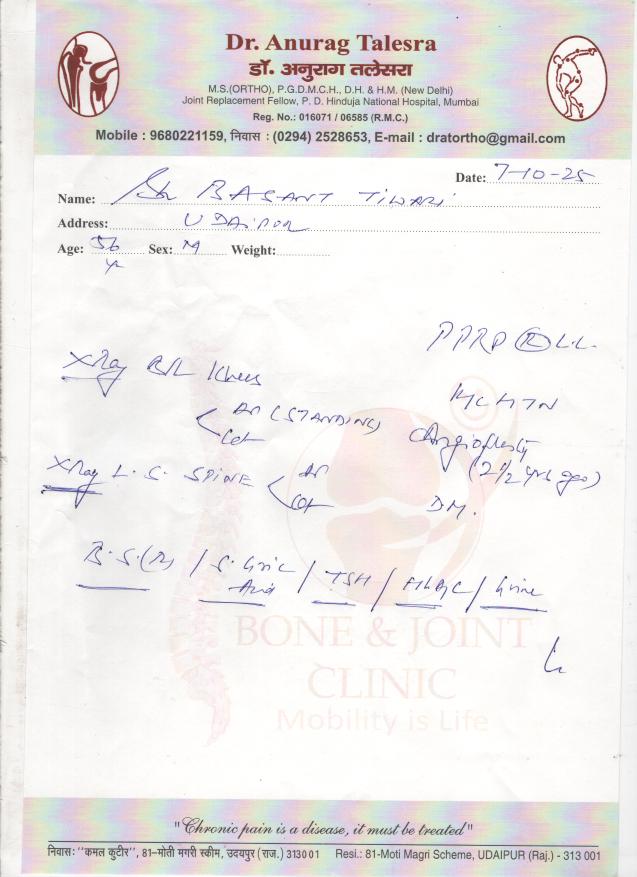 Dr. Anurag Talesra
डॉ. अनुराग तलेसरा
M.S.(ORTHO), P.G.D.M.C.H., D.H. & H.M. (New Delhi)
Joint Replacement Fellow, P. D. Hinduja National Hospital, Mumbai
Reg. No.: 016071 / 06585 (R.M.C.)
Mobile : 9680221159, निवास : (0294) 2528653, E-mail : dratortho@gmail.com
Date: 7-10-25
Name: Sh BASANT TIWARI
Address: UDAIPUR
Age: 56 yr Sex: M Weight:
X Ray B/L Knees
AP (STANDING)
Lat
X Ray L. S. SPINE
AP
Lat
K/C HTN
Angioplasty
(2 1/2 yrs ago)
DM.
B. S. (R) / S. Uric Acid / TSH / HbA1C / Urine
BONE & JOINT
CLINIC
Mobility is Life
"Chronic pain is a disease, it must be treated"
निवास: "कमल कुटीर", 81-मोती मगरी स्कीम, उदयपुर (राज.) 313001 Resi.: 81-Moti Magri Scheme, UDAIPUR (Raj.) - 313 001